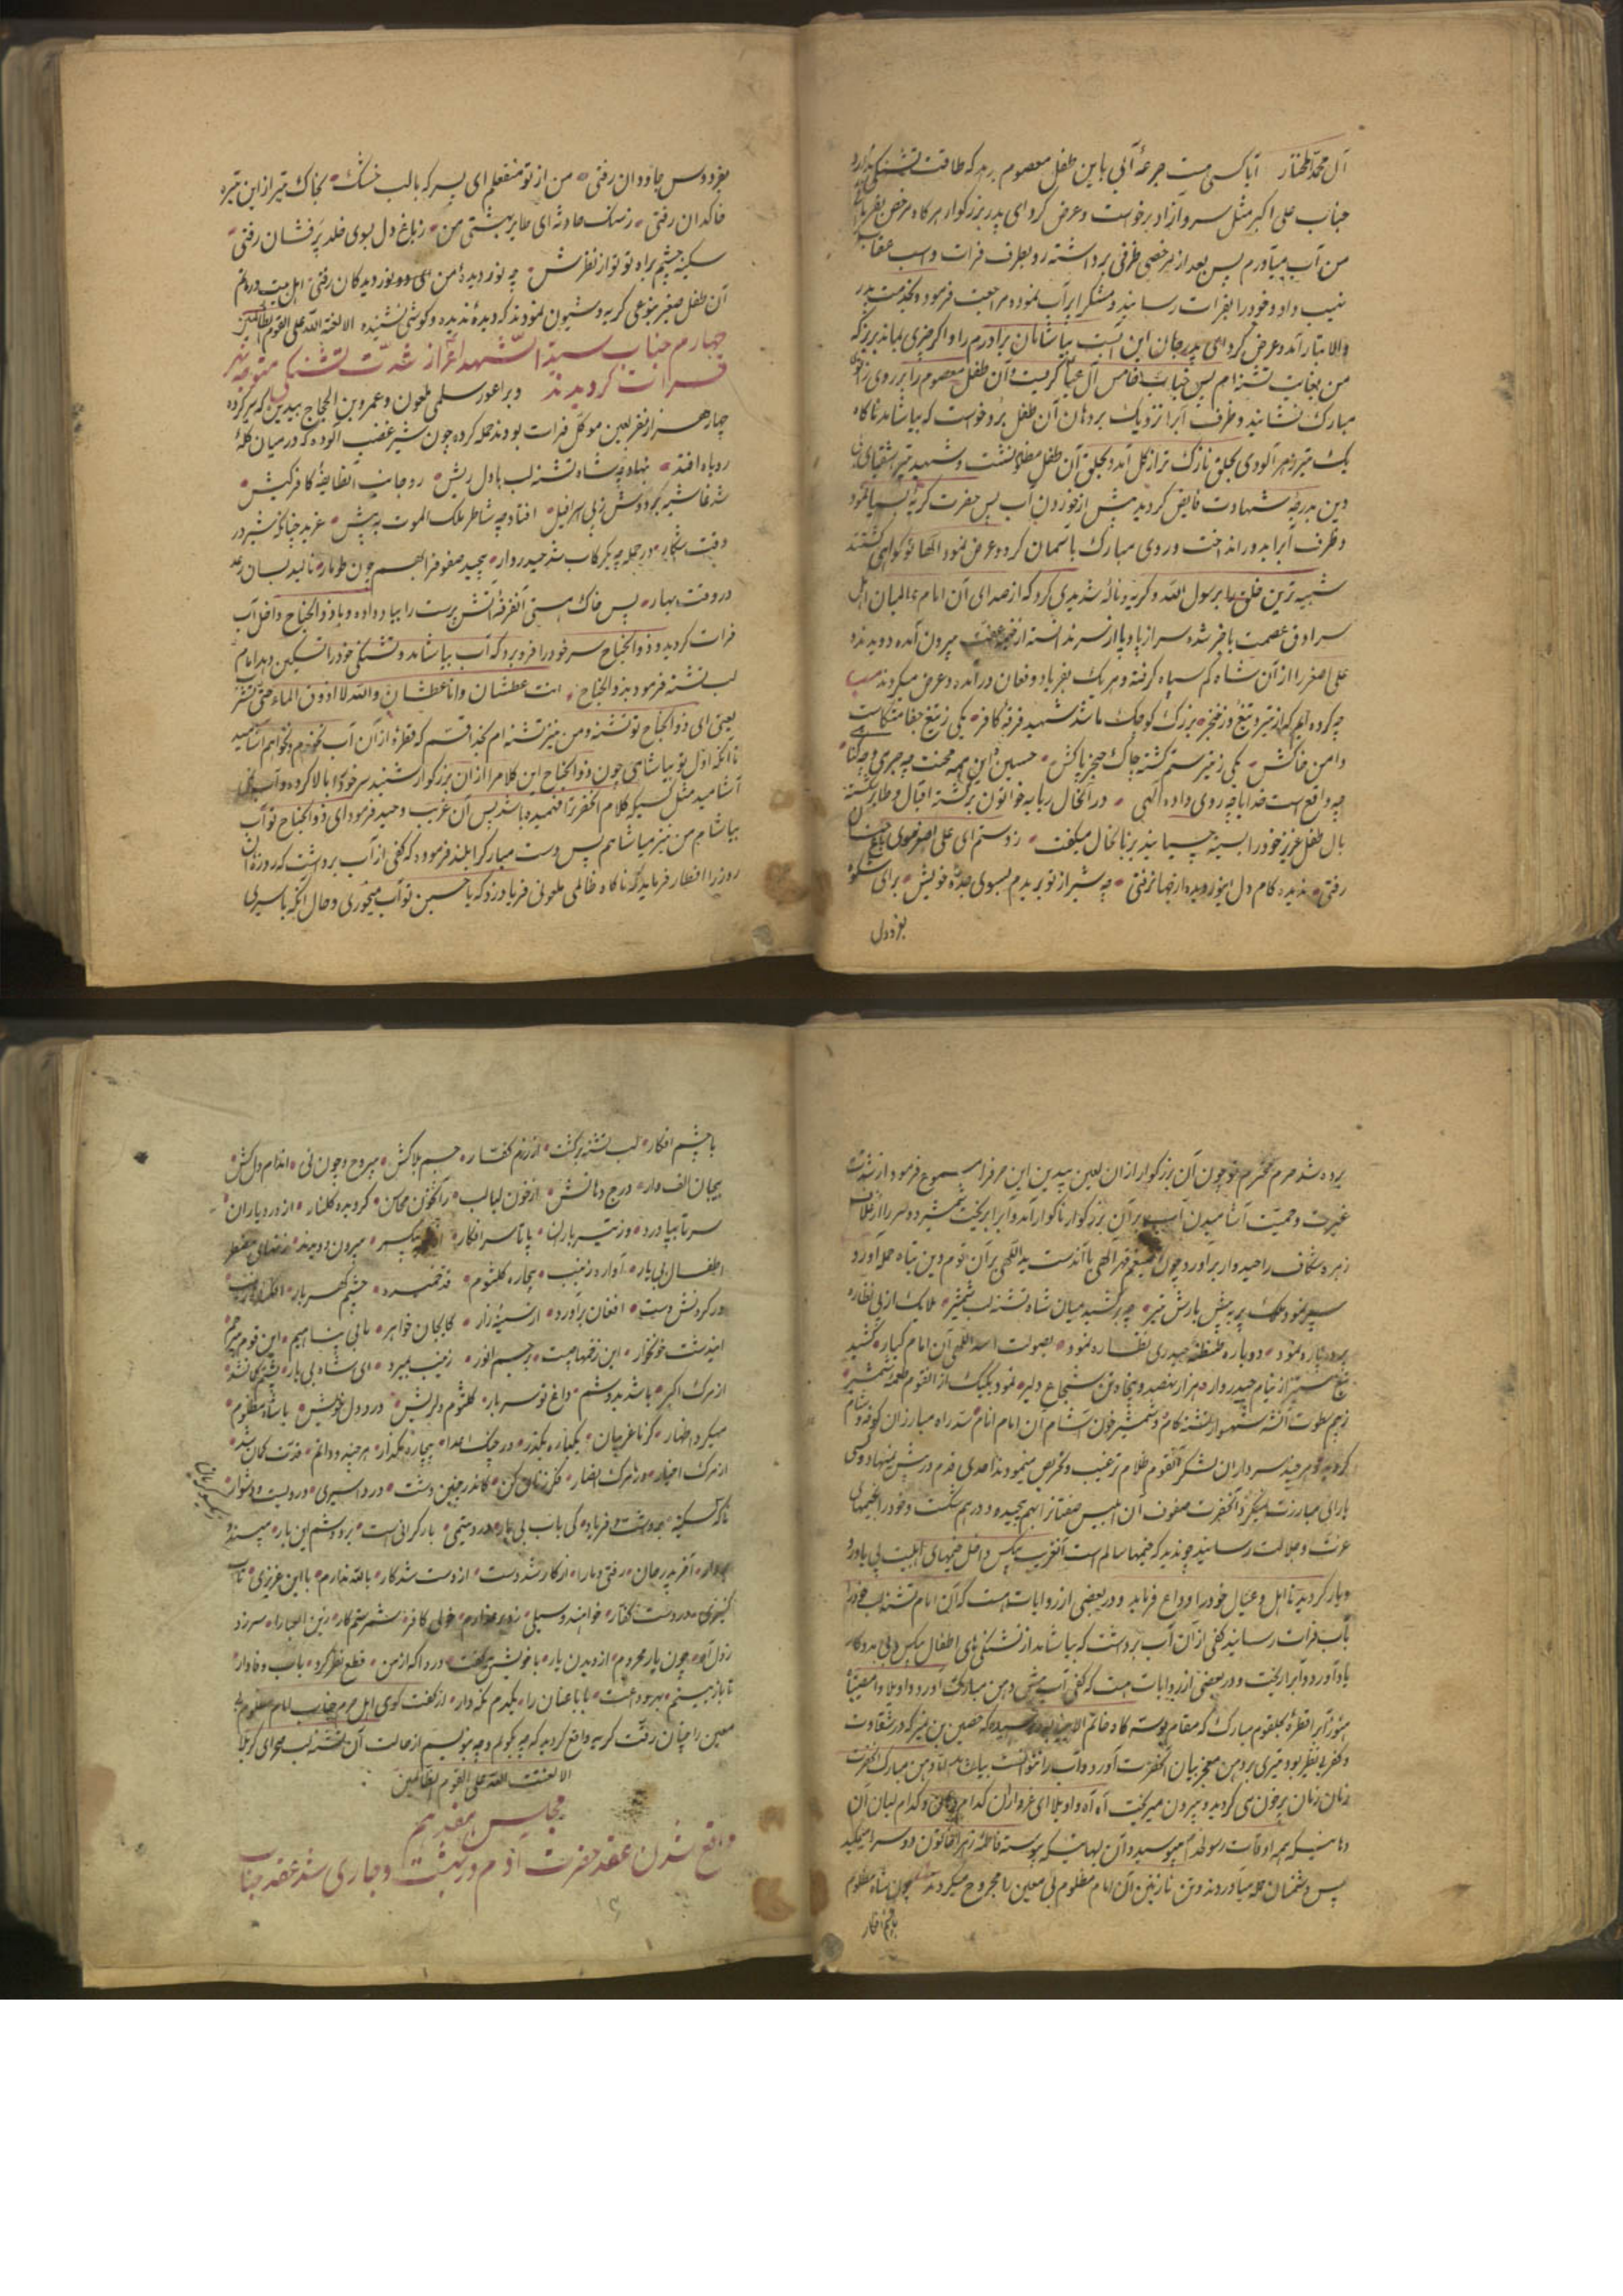 آل محمد مختار آیا کسی هست جرعهٔ آبی باین طفل معصوم بدهد که طاقت تشنگی ندارد
جناب علی اکبر مثل سرو آزاد برخواست و عرض کرد ای پدر بزرگوار هرگاه مرخص بفرمائی
من آب میآورم پس بعد از مرخصی ظرفی برداشته رو بطرف فرات و اسب عقاب
نهیب داد و خود را بفرات رسانید و مشک را پر آب نمود و مراجعت فرمود و بخدمت پدر
والا تبار آمد و عرض کرد ای پدر جان این آبست بیاشامان برادرم را و اگر چیزی بماند بریز که
من بغایت تشنه‌ام پس جناب خامس آل عبا گریست و آن طفل معصوم را بر روی زانوی
مبارک نشانید و ظرف آب را نزدیک بردهان آن طفل برد و خواست که بیاشامد ناگاه
یک تیر زهر آلودی بحلق نازک تر از گل آمد و بحلق آن طفل مظلوم نشست و شهید تیر اشقیای
دین بدرجهٔ شهادت فایض گردید پیش از خوردن آب پس حضرت گریهٔ بسیار نمود
و ظرف آب را بدور انداخت و روی مبارک باسمان کرد و عرض نمود الها تو گواهی کشتند
شبیه ترین خلق را برسول الله و گریه و نالهٔ شدیدی کرد که از صدای آن امام عالمیان اهل
سرادق عصمت باخبر شده سر از پا و پا از سر ندانسته از خیمه عفت بیرون آمده دویدند و
علی اصغر را از آن شاه کم سپاه گرفته و هر یک بفریاد و فغان درآمده و عرض میکردند
چه کرده‌ایم که از تیر و تیغ و از خنجر بزرگ و کوچک ما شد شهید فرقهٔ کافر یکی ز تیغ جفا
دامن خاکش یکی ز تیر ستم گشته چاک حنجر پاکش حسین این همه محنت چه جرم و چه گناه
چه واقع است خدایا چه روی داده الهی در آنحال ربابه خواتون برگشته اقبال و طایر شکسته
بال طفل عزیز خود را بسینه چسپانید بزبانحال میگفت ز دستم ای علی اصغر بسوی باغ جنان
رفتی ندیده کام دل ای نوردیده از جهان رفتی چه شیر از تو بریدم بسوی جدهٔ خویش برای شکوه
بفردوس
بفردوس جاودان رفتی من از تو منفعلم ای پسر که با لب خشک بخاک تیر از این تیره
خاکدان رفتی ز سنگ حادثه ای طایر بهشتی من ز باغ دل بسوی خلد پر فشان رفتی
سکینه چشم براه تو تو از نظرش چه نور دیدهٔ من ای دو نور دیدگان رفتی اهل بیت در ماتم
آن طفل صغیر بنوعی گریه و شیون نمودند که دیدهٔ ندیده و گوشی نشنیده الا لعنة الله علی القوم الظالمین
چهارم جناب سید الشهدا نیز از شدت تشنگی متوجه نهر
فرات گردیدند و بر اعور سلمی ملعون و عمرو بن الحجاج بیدین که سرکرده
چهار هزار نفر لعین موکل فرات بودند حمله کرده چون شیر غضب آلوده که در میان گلهٔ
روباه افتد بنهاد چه شاه تشنه لب با دل ریش رو جانب آنطایفهٔ کافر کیش
شد غاشیه بر دوش ز پی اسرافیل افتاد چه شاطر ملک الموت به پیش غرید چنانکه شیر در
وقت شکار در حمله چه بر رکاب شد حیدروار پیچید صفوف را بهم چون طومار نالید بسان رعد
در وقت بهار پس خاک هستی آنفرقهٔ آتش پرست را بباد داده و با ذوالجناح داخل آب
فرات گردید و ذوالجناح سر خود را فرو برد که آب بیاشامد و تشنگی خود را تسکین دهد امام
لب تشنه فرمود بذوالجناح انت عطشان و انا عطشان والله لا اذوق الماء حتی تشرب
یعنی ای ذوالجناح تو تشنه و من نیز تشنه‌ام بخدا قسم که قطرهٔ از آن آب نخورم و نخواهم آشامید
تا آنکه اول تو بیاشامی چون ذوالجناح این کلام را از آن بزرگوار شنید سر خود را بالا کرده و آب
آشامید مثل کسیکه کلام آنحضرت را فهمیده باشد پس آن غریب و حید فرمود ای ذوالجناح تو آب
بیاشام من نیز میاشامم پس دست مبارک را بلند فرموده که کفی از آب برداشت که روزهٔ آن
روز را افطار فرماید که ناگاه ظالمی ملعونی فریاد زد که یا حسین تو آب میخوری و حال آنکه باسیری
برده شد حرم محترم تو چون آن بزرگوار از آن لعین بیدین این حرف را مسموع فرمود از شدت
غیرت و حمیت آشامیدن آب بر آن بزرگوار ناگوار آمد و آب را بریخت شمشیر دو سر را از غلاف
زهره شکاف را حیدروار برآورد و چون ضیغم قهر الهی با آندست ید اللهی بر آن قوم دین تباه حمله آورد
سپر نمود ملک پر به پیش بارش تیر چه برکشید میان شاه تشنه لب شمشیر ملایک از پی نظاره
نمود دوباره طنطنهٔ حیدری نظاره نمود بصولت اسد اللهی آن امام کبار کشید
تیغ ستیز از نیام حیدروار هزار نهصد و پنجاه تن شجاع دلیر نمود یکیک از آنقوم طعمهٔ شمشیر
ز بیم سطوت آنشهسوار تشنه کام و شمشیر خون آشام آن امام انام سد راه مبارزان کوفه و شام
گردید و هر چند سرداران لشکر آنقوم ظلام ترغیب و تحریص مینمودند احدی قدم در پیش ننهاد و کسی
یارای مبارزت نمیکرد آنحضرت صفوف آن ابلیس صفتان را بهم پیچیده و درهم شکست و خود را بخیمهای
عزت و جلالت رسانید چون دید که خیمها سالم است آنغریب بیکس داخل خیمهای اهلبیت بی یاور و
دیار گردید تا اهل و عیال خود را وداع فرماید و در بعضی از روایات هست که آن امام تشنه لب خود را
بآب فرات رسانید کفی از آن آب برداشت که بیاشامد از تشنگی های اطفال بیکس و بی مددکار
یاد آورد و آب را ریخت و در بعضی از روایات هست که کفی آب پیش دهن مبارک آورد و اویلا و امصیبتا
هنوز آب قطرهٔ بحلقوم مبارک که مقام بوسه گاه خاتم الانبیا بود نرسیده که حصین بن نمیر که در شقاوت
و کفر بی نظیر بود تیری بر دهن معجز بیان آنحضرت آورد و آب را نتوانست بیاشامد آن دهن مبارک آنحضرت
زمان زمان پر خون می گردید و بیرون میریخت آه آه واویلا ای عزاداران کدام دهان و کدام لبان آن
دهانیکه همه اوقات رسولخدا میبوسید و آن لبهائیکه پیوسته فاطمه زهرا خاتون دو سرا میمکید
پس دشمنان حمله میآوردند و تن نازنین آن امام مظلوم بی معین را مجروح میکردند چون شاه مظلوم
با چشم افکار
با چشم افکار لب تشنه برگشت از رزم کفار جسم بلاکش مجروح چون نی اندام دلکش
بیجان الف وار درج دهانش از خون لبالب راکعون محاسن گردیده گلنار از درد یاران
سر تا بپا درد وز تیر باران پا تا سر افکار بیرون دویدند مضطر
اطفال بی یار آواره زینب بیچاره کلثوم قد خمیده چشم گهربار
در گردنش دست افغان برآورد از سینهٔ زار کایجان خواهر ما بی پناهیم این قوم بیرحم
ایندشت خونخوار این زخمها چیست بر جسم انور زینب بمیرد ای شاه بی یار پشتم شد
از مرگ اکبر باشد بدوشم داغ تو سربار کلثوم دلریش درد دل خویش با شاه مظلوم
میکرد اظهار کز ما غریبان یکباره مگذر در چنگ اعدا بیچاره مگذار هر چند دانم قدت کمان شد
از مرگ احباب وز مرگ انصار فکر زنان کن کاندر چنین دشت درد اسیری دردیست دشوار
ناگه سکینه برداشت فریاد کی باب بی یار درد یتیمی بار گرانی است بر دوشم این بار مپسند
آخر پدر جان رفتی و ما را از کار شد دست از دست شد کار بالله ندارم با این عزیزی تاب
کنیزی در دست کفار خواهند و سیلی زد بر عذارم خولی کافر شمر ستمکار زین العبا را سر زد
ز دل آه چون یار محروم از دیدن یار با خویش میگفت دردا که از من قطع نظر کرد باب وفادار
تا باز بینم بهر وداعت بابا عنان را یکدم نگهدار از گفت گوی اهل حرم جناب امام مظلوم بی
معین را چنان رقت گریه واقع گردید که چه گویم و چه نویسم از حالت آن تشنه لب صحرای کربلا
الا لعنت الله علی القوم الظالمین
مجلس هفدهم
واقع شدن عقد حضرت آدم در بهشت و جاری شد عقد جناب